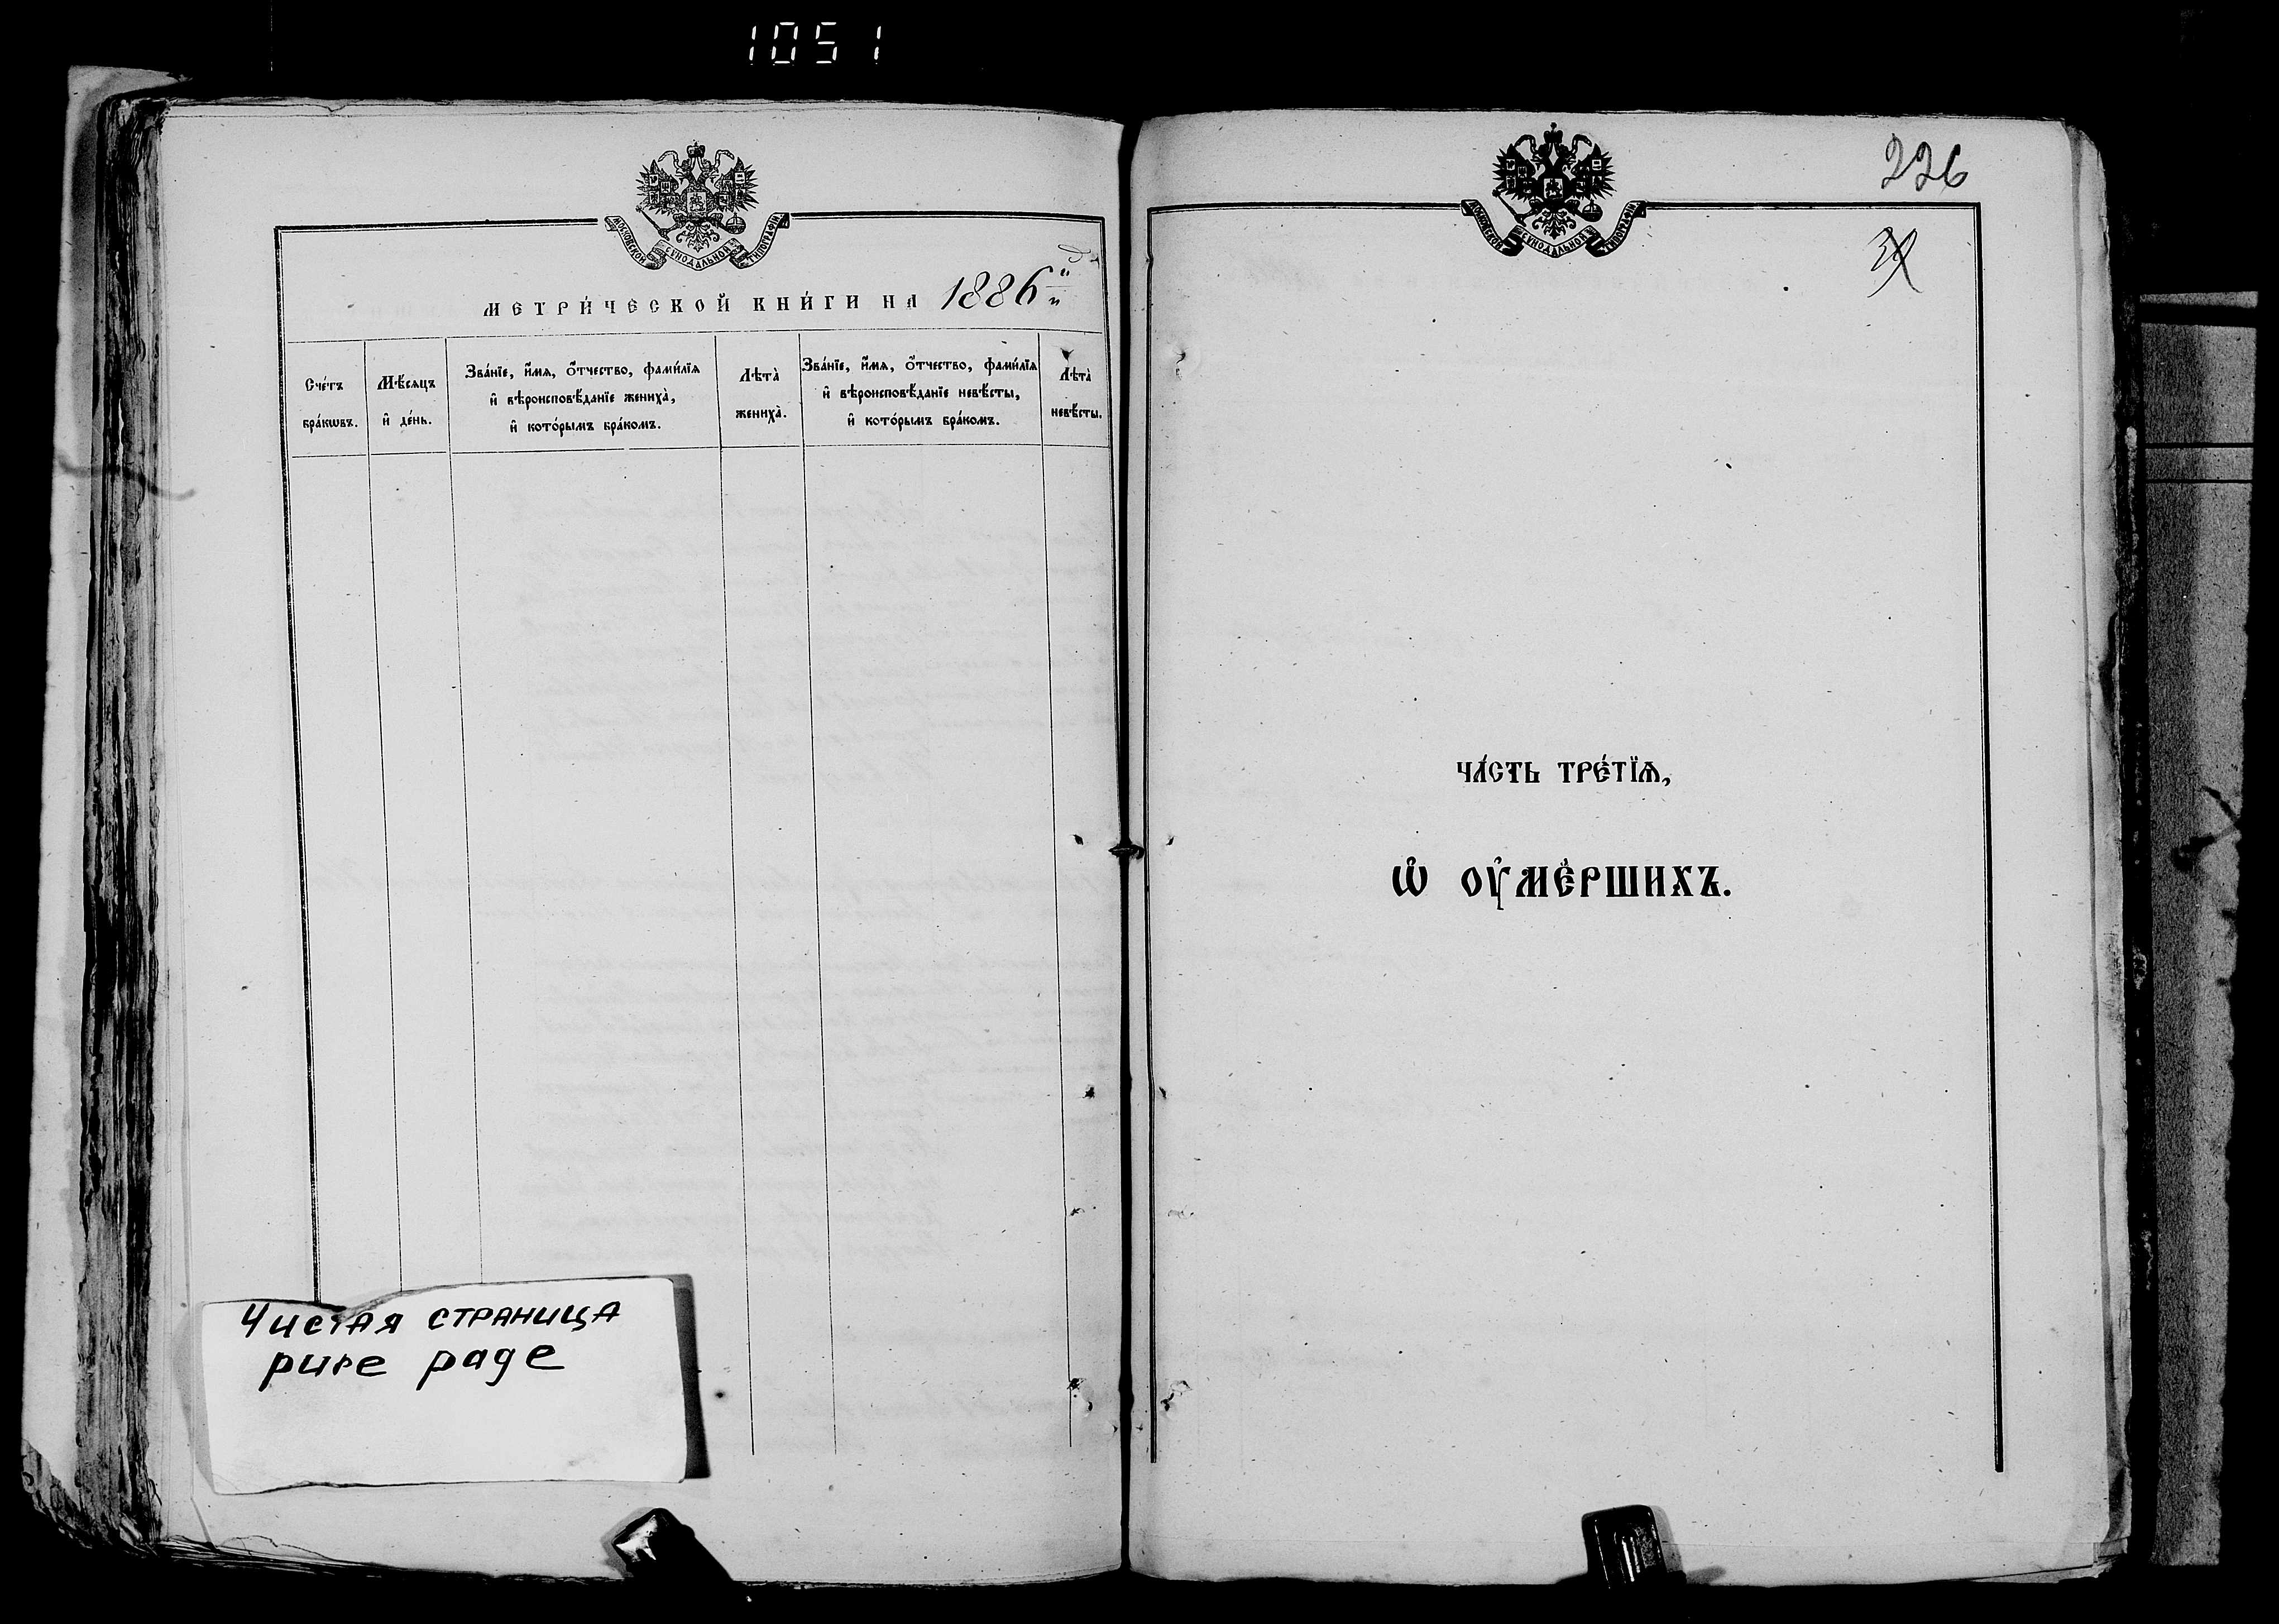 1051
МОСКОВСКОЙ СѴНОДАЛЬНОЙ ТИПОГРАФІИ
МЕТРИ́ЧЕСКОЙ КНИ́ГИ НА 1886
Сче́тъ
бра́кѡвъ.
Мѣ́сѧцъ
и҆ де́нь.
Зва́нїе, и҆́мѧ, ѻ҆́тчество, фами́лїѧ
и҆ вѣроисповѣ́данїе жениха̀,
и҆ кото́рымъ бра́комъ.
Лѣта̀
жениха̀.
Зва́нїе, и҆́мѧ, ѻ҆́тчество, фами́лїѧ
и҆ вѣроисповѣ́данїе невѣ́сты,
и҆ кото́рымъ бра́комъ.
Лѣта̀
невѣ́сты.
Чистая страница
pure page
226
МОСКОВСКОЙ СѴНОДАЛЬНОЙ ТИПОГРАФІИ
ЧА́СТЬ ТРЕ́ТЇѦ,
Ѡ҆ ОУ҆МЕ́РШИХЪ.